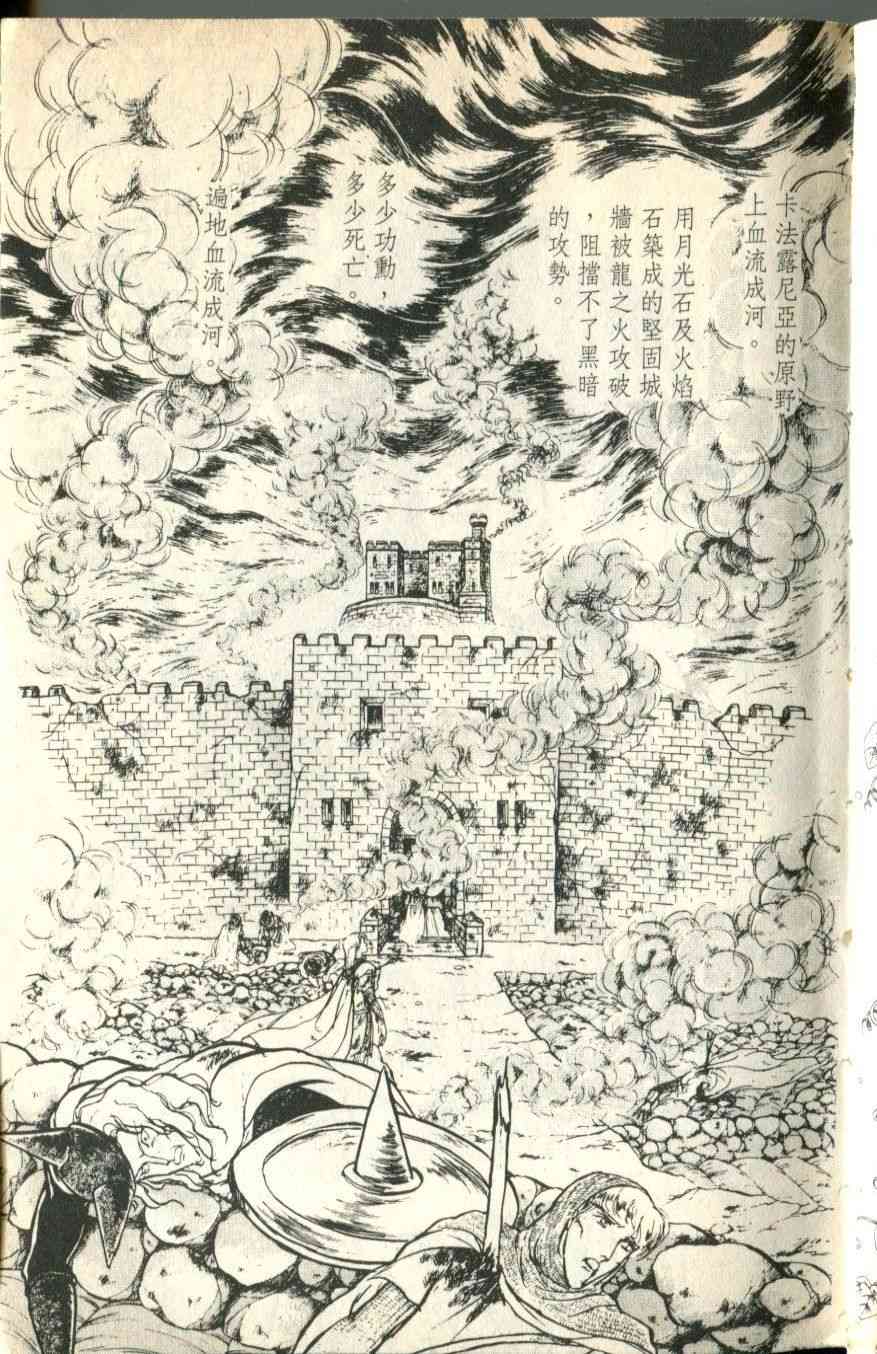 卡法露尼亞的原野
上血流成河。
用月光石及火焰
石築成的堅固城
牆被龍之火攻破
，阻擋不了黑暗
的攻勢。
多少功勳，
多少死亡。
遍地血流成河。